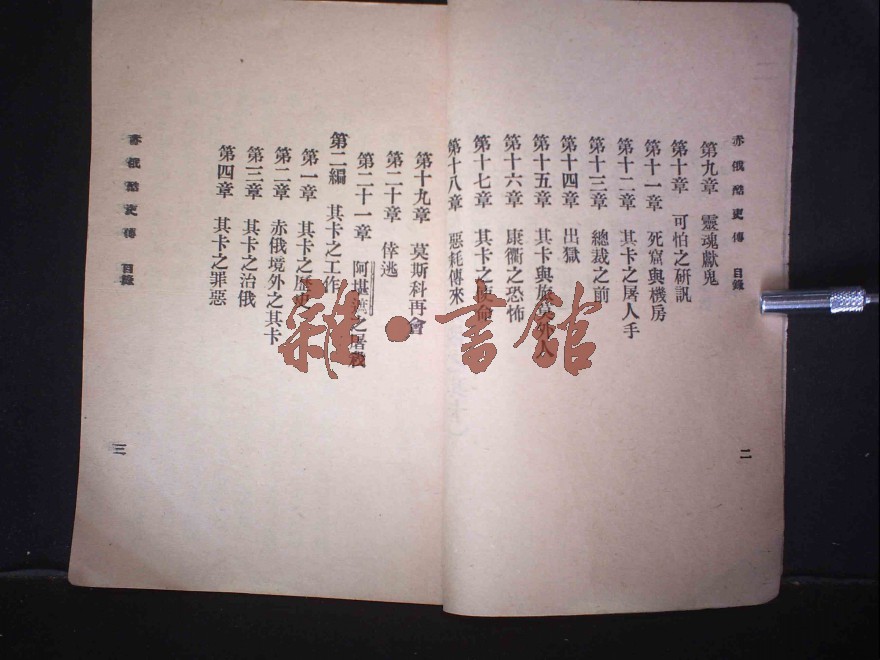 赤俄酷吏傳 目錄
第九章 靈魂獻鬼
第十章 可怕之研訊
第十一章 死窟與機房
第十二章 其卡之屠人手
第十三章 總裁之前
第十四章 出獄
第十五章 其卡與 外人
第十六章 康衢之恐怖
第十七章 其卡之使命
第十八章 惡耗傳來
二
第十九章 莫斯科再會
第二十章 倖逃
第二十一章 阿堪 之屠殺
第二編 其卡之工作
第一章 其卡之歷史
第二章 赤俄境外之其卡
第三章 其卡之治俄
第四章 其卡之罪惡
赤俄酷吏傳 目錄
三
雜·書館